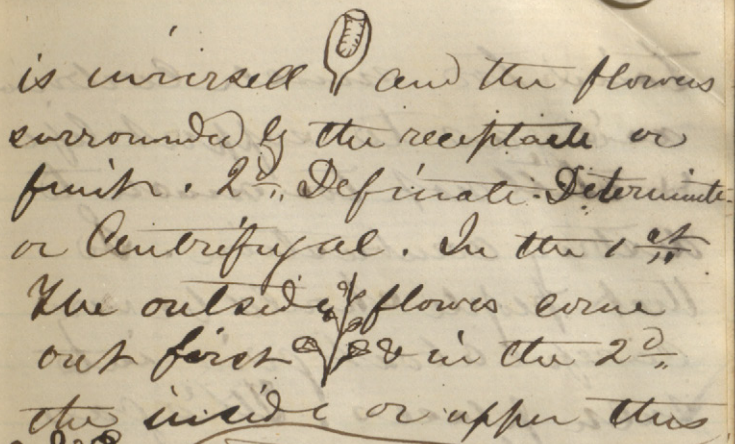 is inversed and the flowers
surrounded by the receptacle or
fruit. 2d. Definate. Determinate
or Centrifugal. In the 1st
The outside flowers come
out first & in the 2d
the inside or upper thus